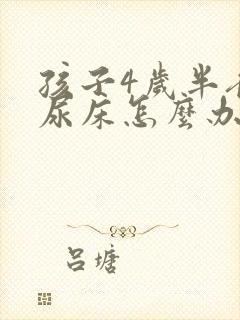 孩子4歲半
尿床怎麼办
呂塘